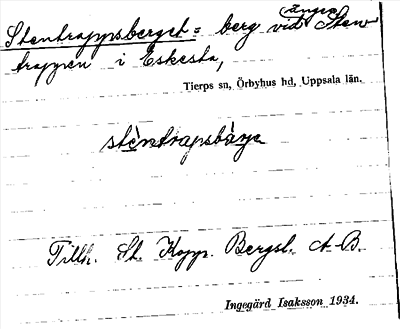 Stentrappsberget = berg vid (ängen) Sten-
trappen i Eskesta,
Tierps sn, Örbyhus hd, Uppsala län.
stèntrapsbàrje
Tillh. St. Kopp. Bergsl. A-B.
Ingegärd Isaksson 1934.